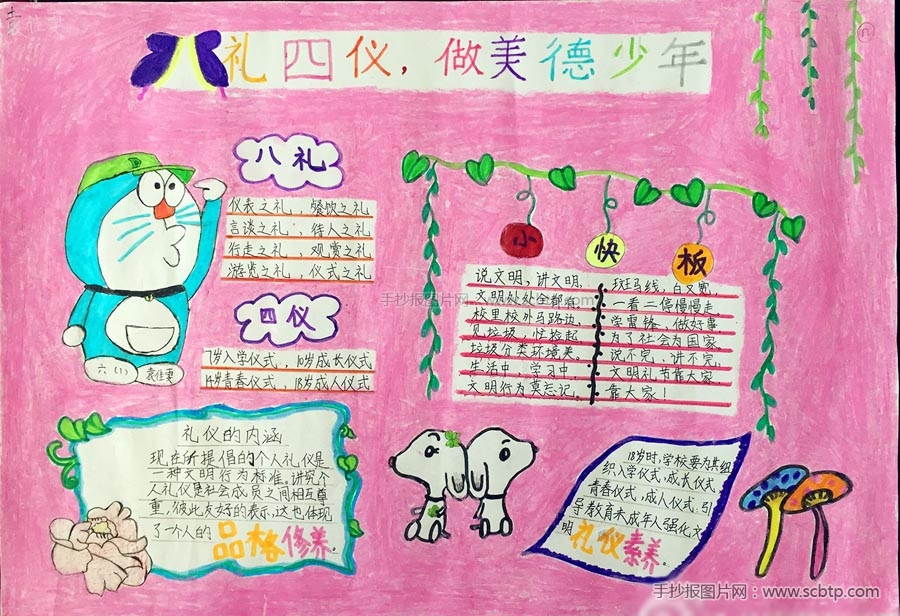 袁佳雯
八礼四仪，做美德少年
八礼
仪表之礼，餐饮之礼
言谈之礼，待人之礼
行走之礼，观赏之礼
游览之礼，仪式之礼
四仪
7岁入学仪式，10岁成长仪式
14岁青春仪式 18岁成人仪式
六（1） 袁佳雯
小快板
说文明，讲文明，
文明处处全都有
校里校外马路边，
见垃圾，忙捡起
垃圾分类环境美。
生活中，学习中
文明行为莫忘记。
斑马线，白又宽，
一看二停慢慢走。
学雷锋，做好事
为了社会为国家
说不完，讲不完，
文明礼节靠大家，
靠大家！
手抄报图片网：www.scbtp.com
礼仪的内涵
现在所提倡的个人礼仪是
一种文明行为标准。讲究个
人礼仪是社会成员之间相互尊
重，彼此友好的表示，这也体现
了一个人的品格修养。
18岁时，学校要为其组
织入学仪式，成长仪式
青春仪式，成人仪式。引
导教育未成年人强化文
明礼仪素养。
手抄报图片网：www.scbtp.com